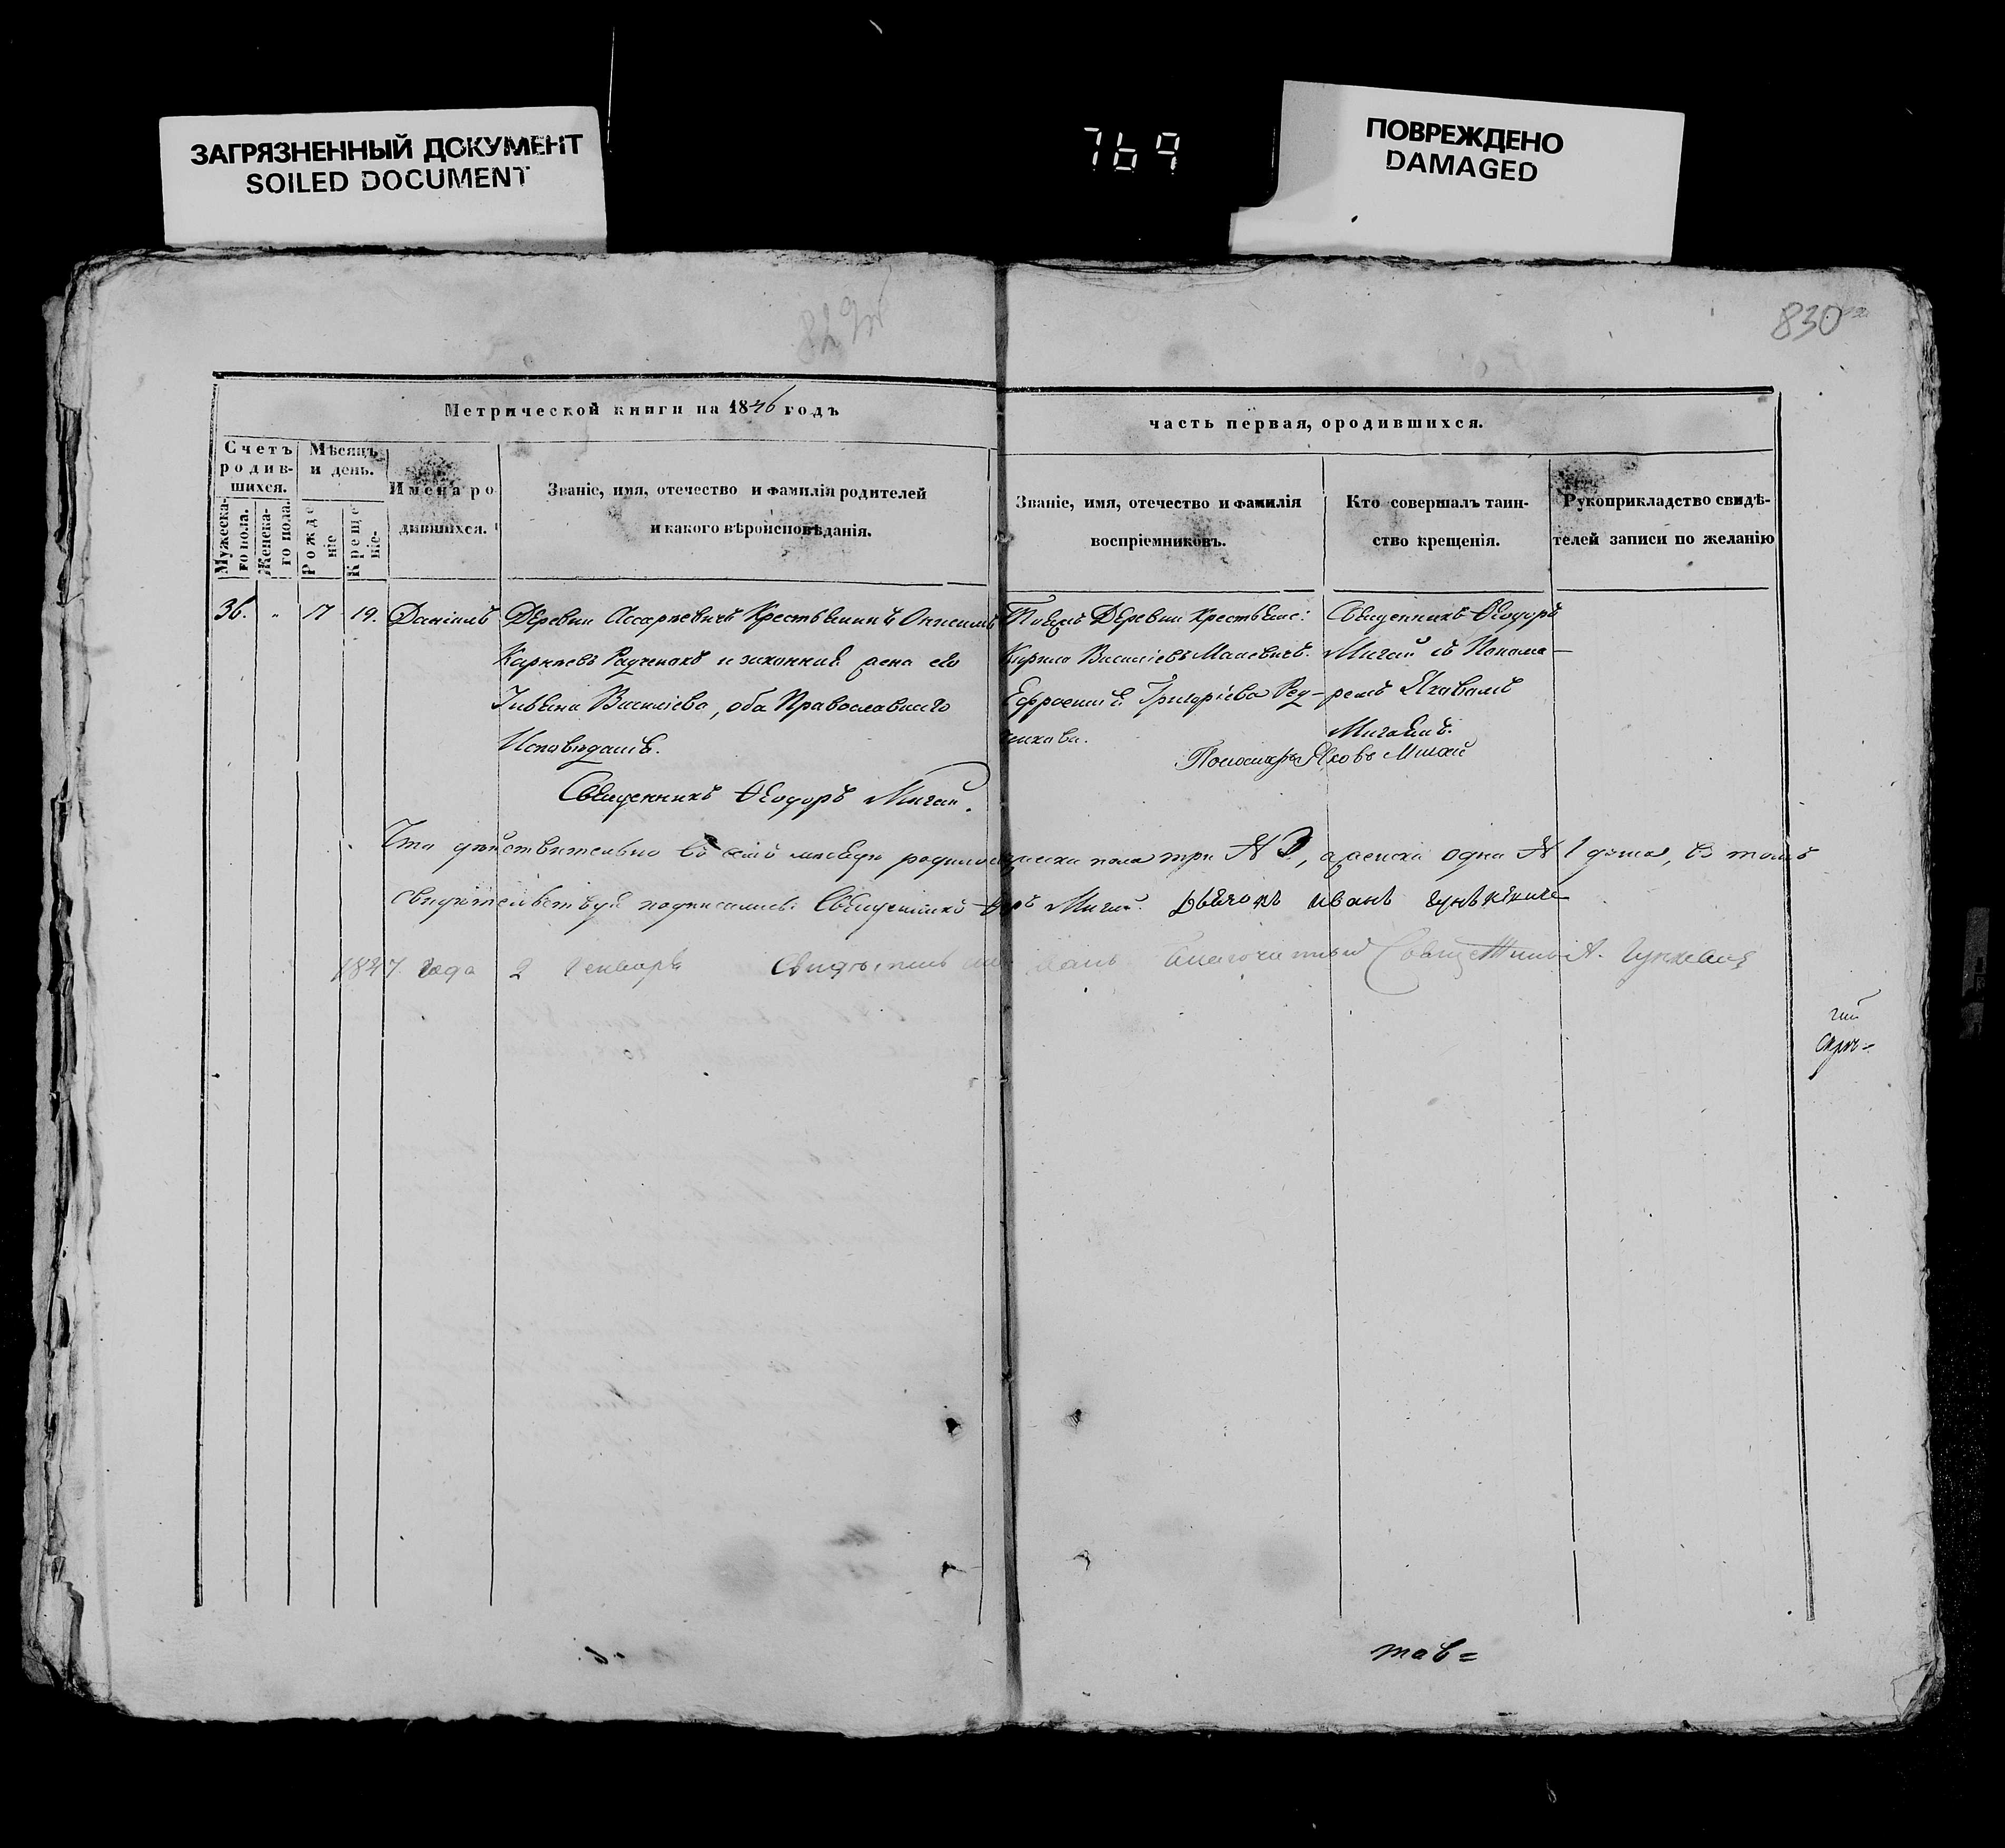 ЗАГРЯЗНЕННЫЙ ДОКУМЕНТ
SOILED DOCUMENT
769
ПОВРЕЖДЕНО
DAMAGED
830
Метрической книги на 1846 годъ
часть первая, ородившихся.
Счетъ родив-шихся.
Мужеска-го пола.
Женска-го пола.
Мѣсяцъ и день.
Рожде ніе
Креще ніе.
Имена ро дившихся.
Званіе, имя, отечество и фамилія родителей
и какого вѣроисповѣданія.
Званіе, имя, отечество и фамилія
воспріемниковъ.
Кто совершалъ таин-
ство крещенія.
Рукоприкладство свидѣ-
телей записи по желанію
36. " 17 19. Даніилъ
Деревни Крестьянинъ
Карпевъ Радченокъ и законная жена его
Василіева, оба Православнаго
Исповѣданія.
Священникъ Ѳеодоръ Мигай.
Деревни крестьян:
Кирило Василіевъ
Григоріева Ред-
никова.
Священникъ Ѳеодоръ
Мигай съ Понома-
ремъ Яковомъ
Мигаемъ.
Пономарь Яковъ Мигай
Что дѣйствительно въ семъ мѣсяцѣ родилось мужеска пола три № 3, а женска одна № 1 душа, въ томъ
свидѣтельствуя подписались: Священникъ Мигай. Дьячокъ Иванъ
1847 года 2 Генваря Благочинный Священникъ А.
тав=